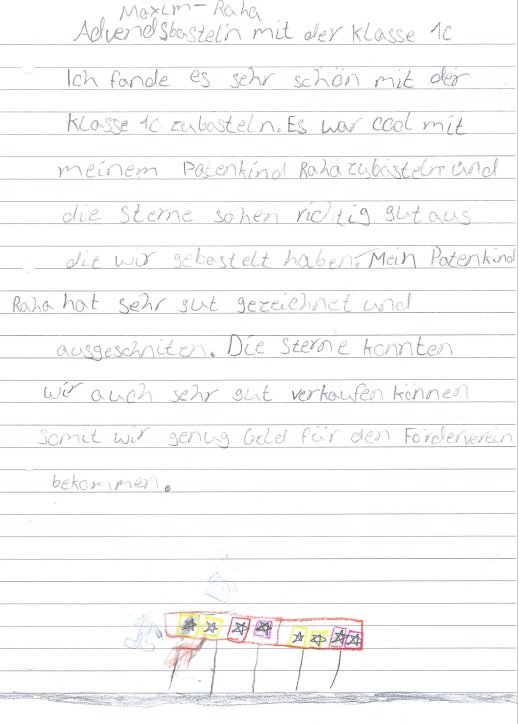 Maxim - Raha
Advendsbasteln mit der Klasse 1c
Ich fande es sehr schön mit der
Klasse 1c zubasteln. Es war cool mit
meinem Patenkind Raha zubasteln und
die Sterne sahen richtig gut aus
die wir gebastelt haben. Mein Patenkind
Raha hat sehr gut gezeichnet und
ausgeschniten. Die Sterne konnten
wir auch sehr gut verkaufen können
somit wir genug Geld für den Förderverein
bekommen.